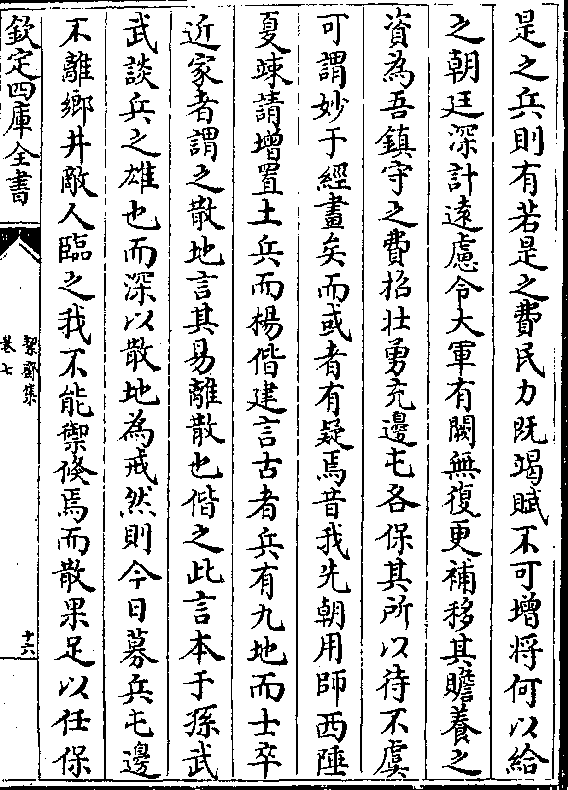 是之兵則有若是之費民力既竭賦不可增將何以給
之朝廷深計遠慮令大軍有闕無復更補移其贍養之
資為吾鎮守之費招壯勇充邊屯各保其所以待不虞
可謂妙于經畫矣而或者有疑焉昔我先朝用師西陲
夏竦請增置土兵而楊偕建言古者兵有九地而士卒
近家者謂之散地言其易離散也偕之此言本于孫武
武談兵之雄也而深以散地為戒然則今日募兵屯邊
不離鄉井敵人臨之我不能禦倏焉而散果足以任保
欽定四庫全書
絜齋集
卷七
十六